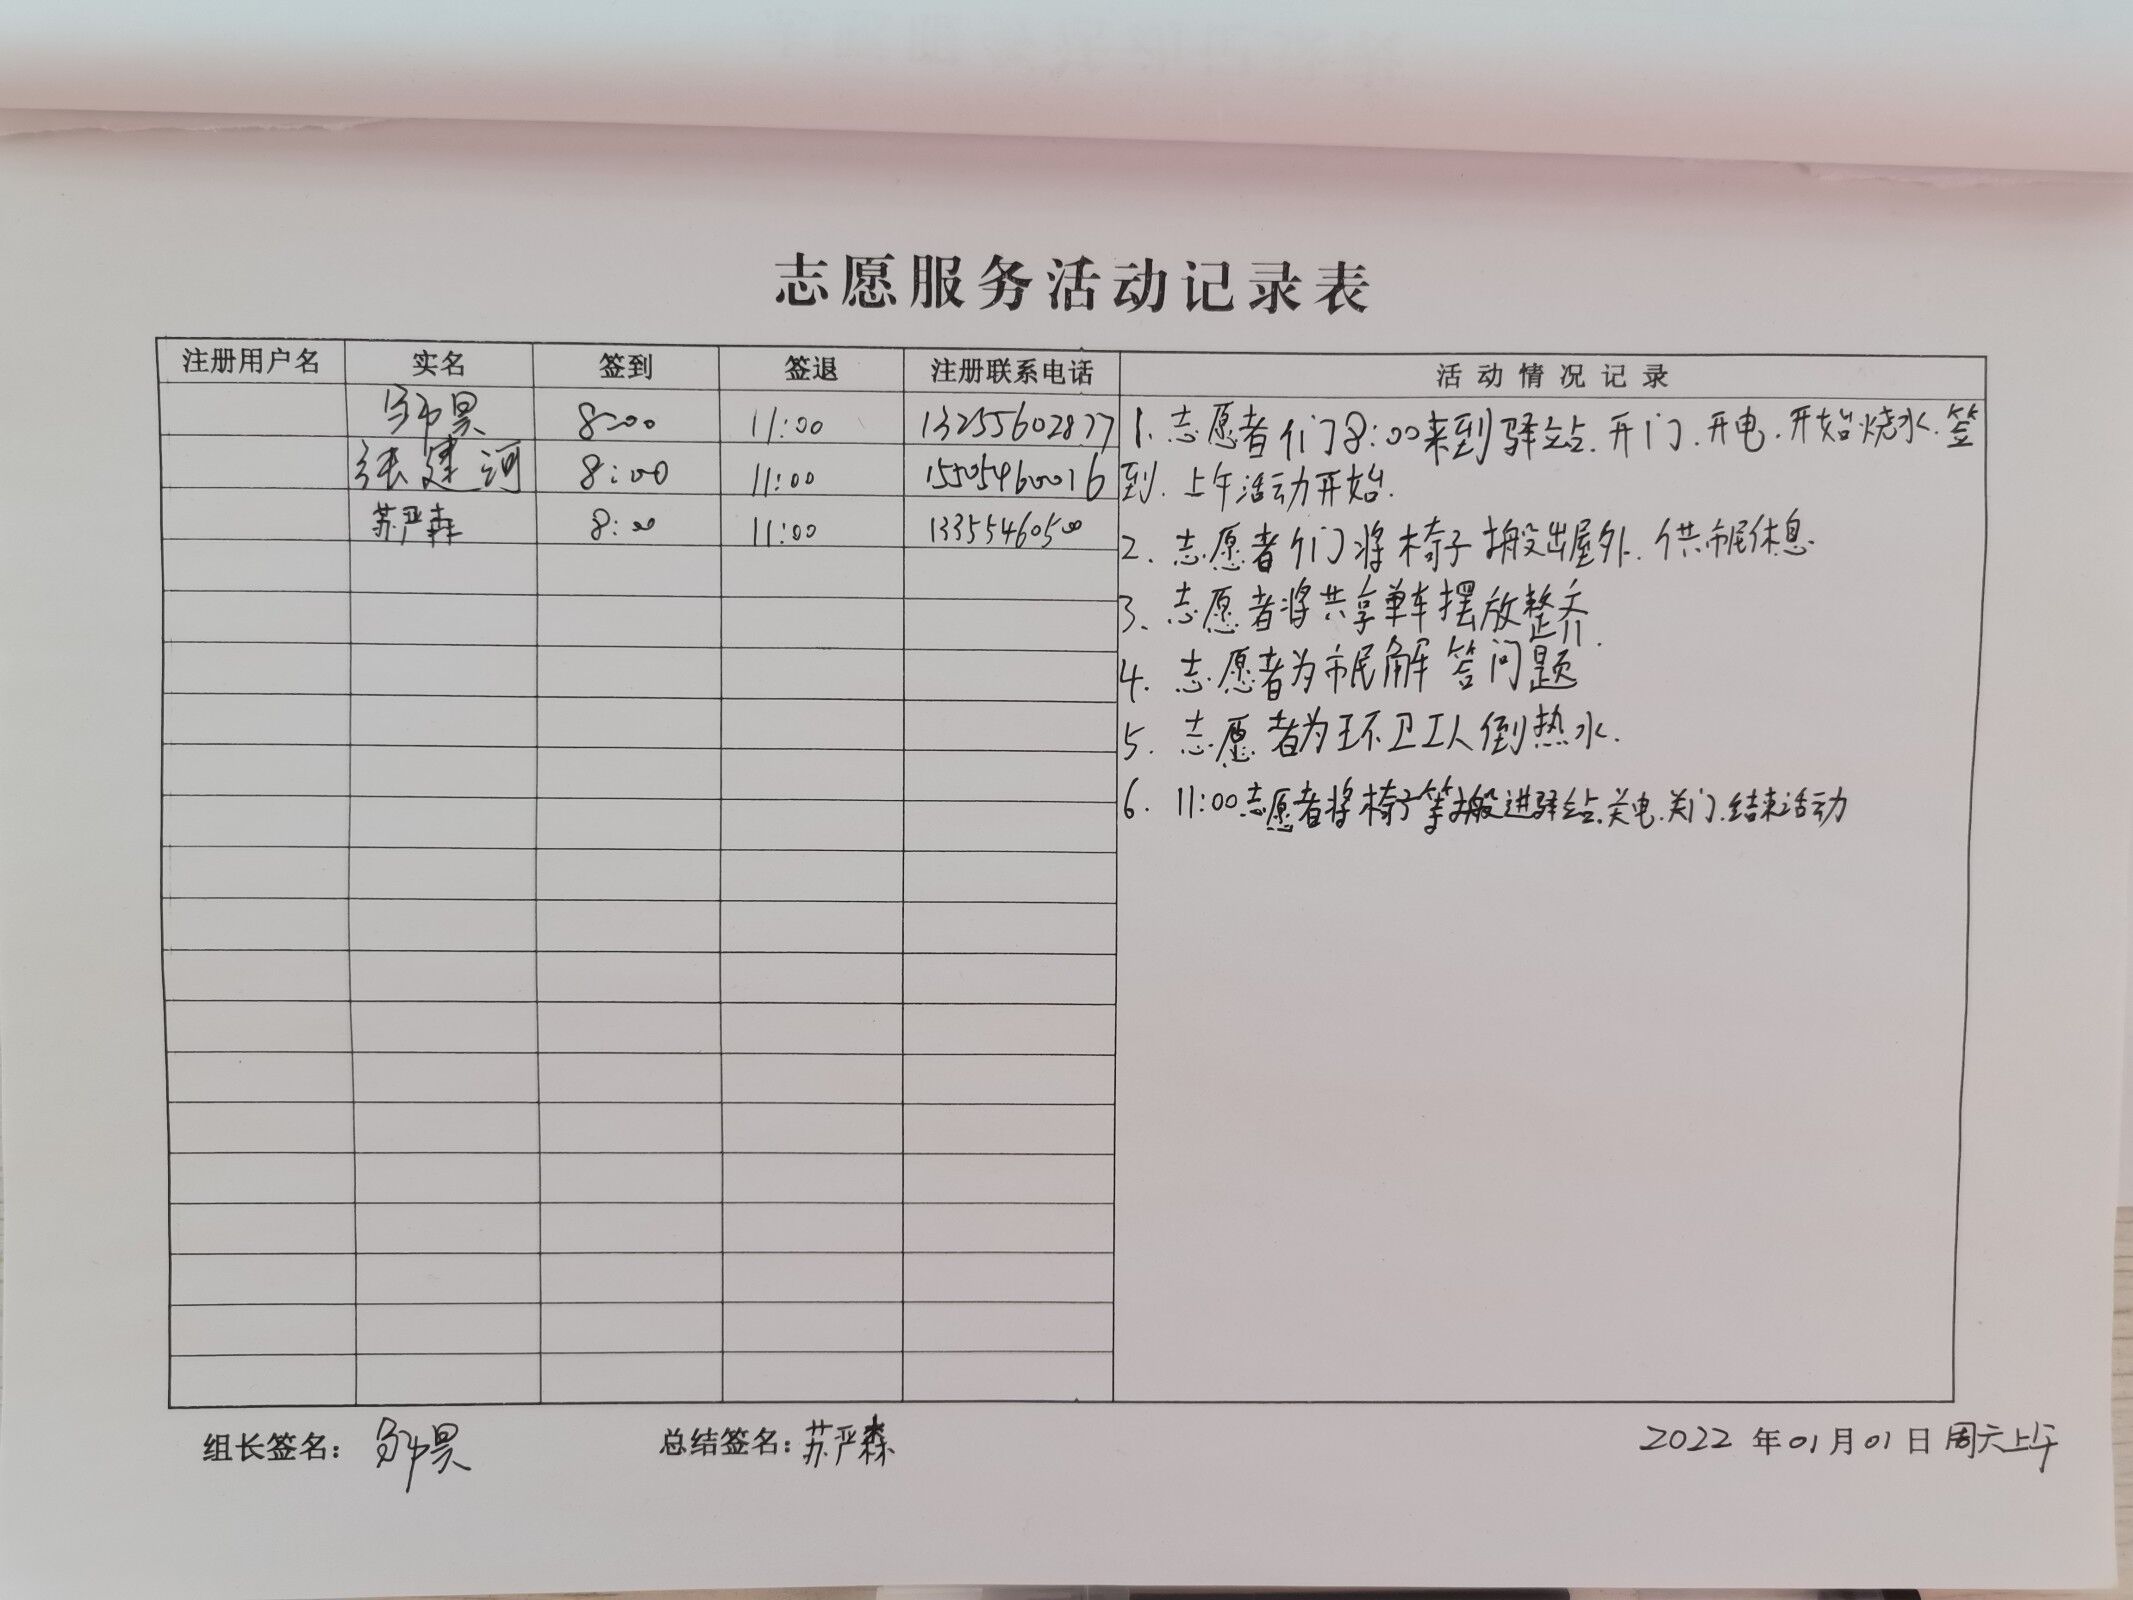 志愿服务活动记录表
注册用户名 实名 签到 签退 注册联系电话 活动情况记录
邹昊 8:00 11:00 13255602877
张建河 8:00 11:00 15505460016
苏严森 8:00 11:00 13355460500
1. 志愿者们8:00来到驿站.开门.开电.开始烧水.签
到.上午活动开始.
2. 志愿者们将椅子搬出屋外.供市民休息.
3. 志愿者将共享单车摆放整齐.
4. 志愿者为市民解答问题
5. 志愿者为环卫工人倒热水.
6. 11:00志愿者将椅子等搬进驿站.关电.关门.结束活动
组长签名: 邹昊 总结签名: 苏严森 2022年01月01日周六上午